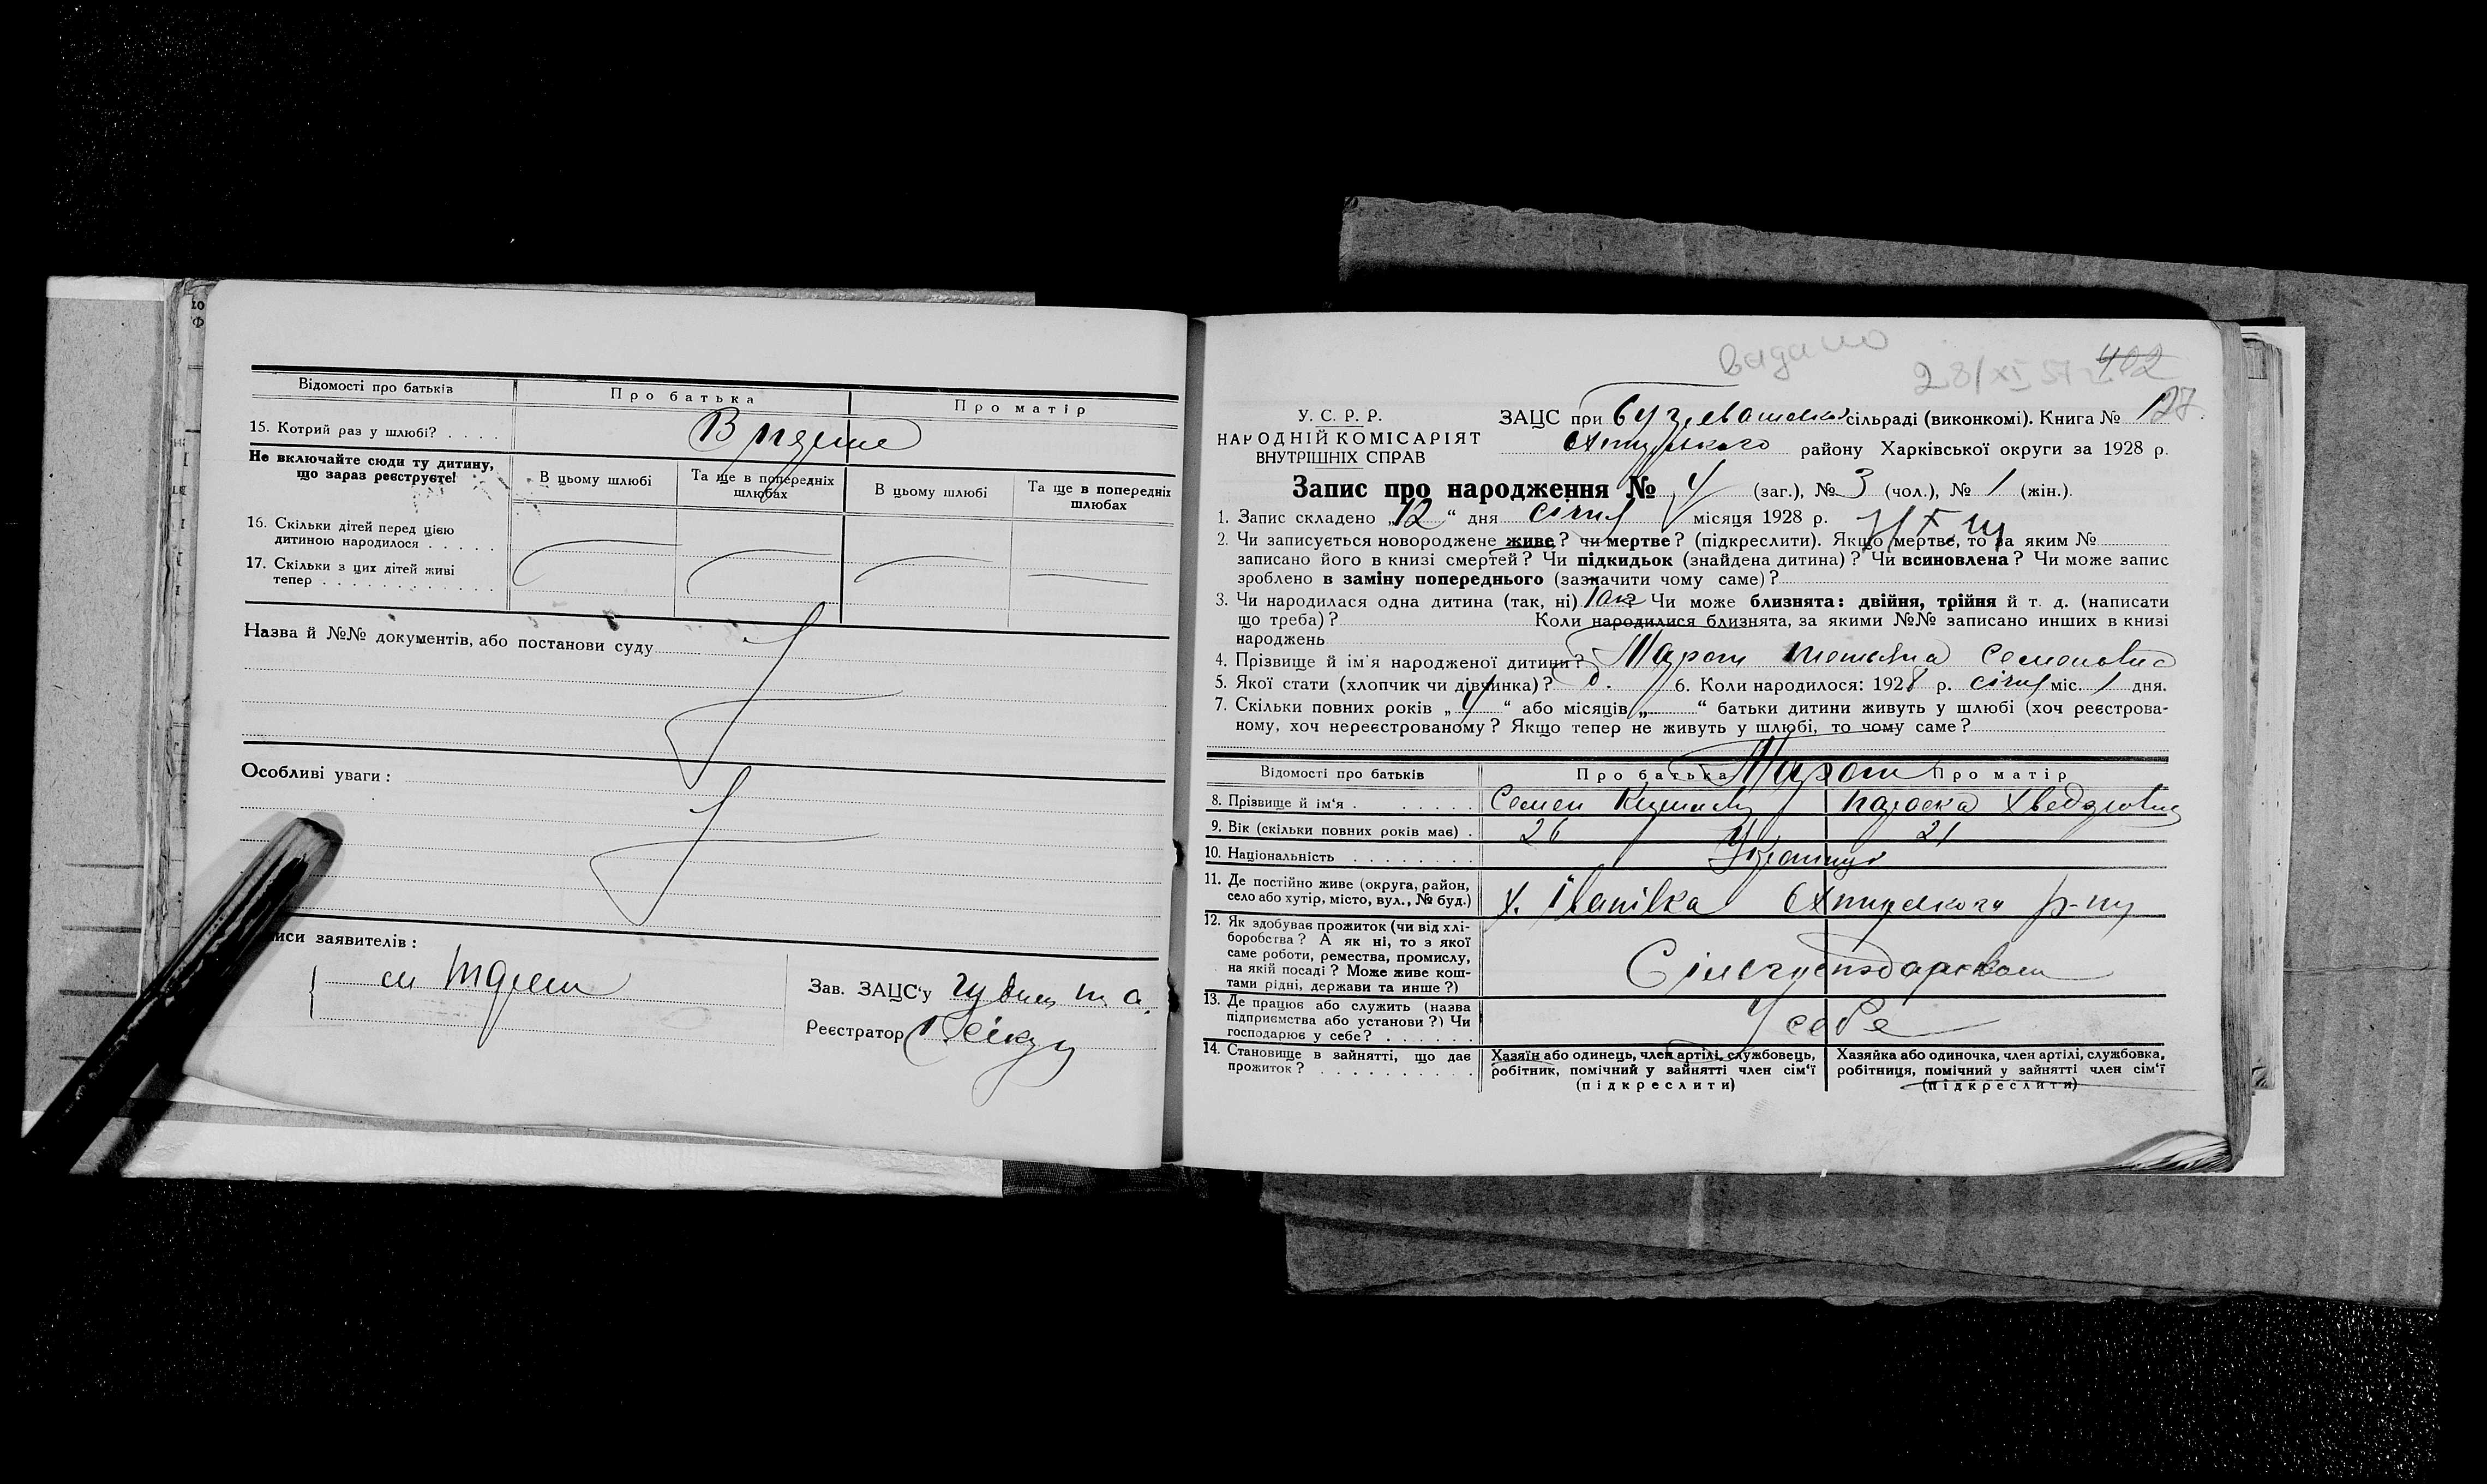 Відомості про батьків
Про батька
Про матір
15. Котрий раз у шлюбі? . . . .
В перше
Не включайте сюди ту дитину,
що зараз реєструєте!
В цьому шлюбі
Та ще в попередніх
шлюбах
В цьому шлюбі
Та ще в попередніх
шлюбах
16. Скільки дітей перед цією
дитиною народилося . . . . .
17. Скільки з цих дітей живі
тепер . . . . . . . . . . .
Назва й №№ документів, або постанови суду
Особливі уваги :
иси заявителів :
Зав. ЗАЦС'у
Реєстратор
видано
28/XI 402
У. С. Р. Р.
НАРОДНІЙ КОМІСАРІЯТ
ВНУТРІШНІХ СПРАВ
ЗАЦС при сільраді (виконкомі). Книга № 127.
Охтирського району Харківської округи за 1928 р.
Запис про народження № 4 (заг.), № 3 (чол.), № 1 (жін.).
1. Запис складено „12" дня січня місяця 1928 р.
2. Чи записується новороджене живе? чи мертве? (підкреслити). Якщо мертве, то за яким №
записано його в книзі смертей? Чи підкидьок (знайдена дитина)? Чи всиновлена? Чи може запис
зроблено в заміну попереднього (зазначити чому саме)?
3. Чи народилася одна дитина (так, ні) так Чи може близнята: двійня, трійня й т. д. (написати
що треба)? Коли народилися близнята, за якими №№ записано инших в книзі
народжень
4. Прізвище й ім'я народженої дитини? Тетяна Семеновна
5. Якої стати (хлопчик чи дівчинка)? д. 6. Коли народилось: 1928 р. січня міс. 1 дня.
7. Скільки повних років „4" або місяців „ " батьки дитини живуть у шлюбі (хоч реєстрова-
ному, хоч нереєстрованому? Якщо тепер не живуть у шлюбі, то чому саме?
Відомості про батьків
Про батька
Про матір
8. Прізвище й ім'я . . . . . . .
Семен
9. Вік (скільки повних років має) .
26
21
10. Національність . . . . . . . .
Українці
11. Де постійно живе (округа, район,
село або хутір, місто, вул., № буд.)
х. Іванівка Охтирського р-ну
12. Як здобуває прожиток (чи від хлі-
боробства? А як ні, то з якої
саме роботи, ремества, промислу,
на якій посаді? Може живе кош-
тами рідні, держави та инше?)
Сільгосподарством
13. Де працює або служить (назва
підприємства або установи?) Чи
господарює у себе? . . . . . .
У себе
14. Становище в зайнятті, що дає
прожиток? . . . . . . . . . .
Хазяїн або одинець, член артілі, службовець,
робітник, помічний у зайнятті член сім'ї
(підкреслити)
Хазяйка або одиночка, член артілі, службовка,
робітниця, помічний у зайнятті член сім'ї
(підкреслити)